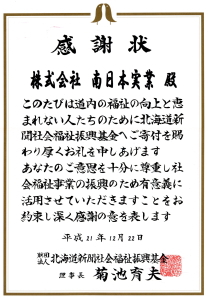 感謝状
株式会社 南日本実業 殿
このたびは道内の福祉の向上と恵
まれない人たちのために北海道新
聞社会福祉振興基金へご寄付を賜
わり厚くお礼を申しあげます
あなたのご意思を十分に尊重し社
会福祉事業の振興のため有意義に
活用させていただきますことをお
約束し深く感謝の意を表します
平成21年12月22日
財団法人 北海道新聞社会福祉振興基金
理事長 菊池育夫